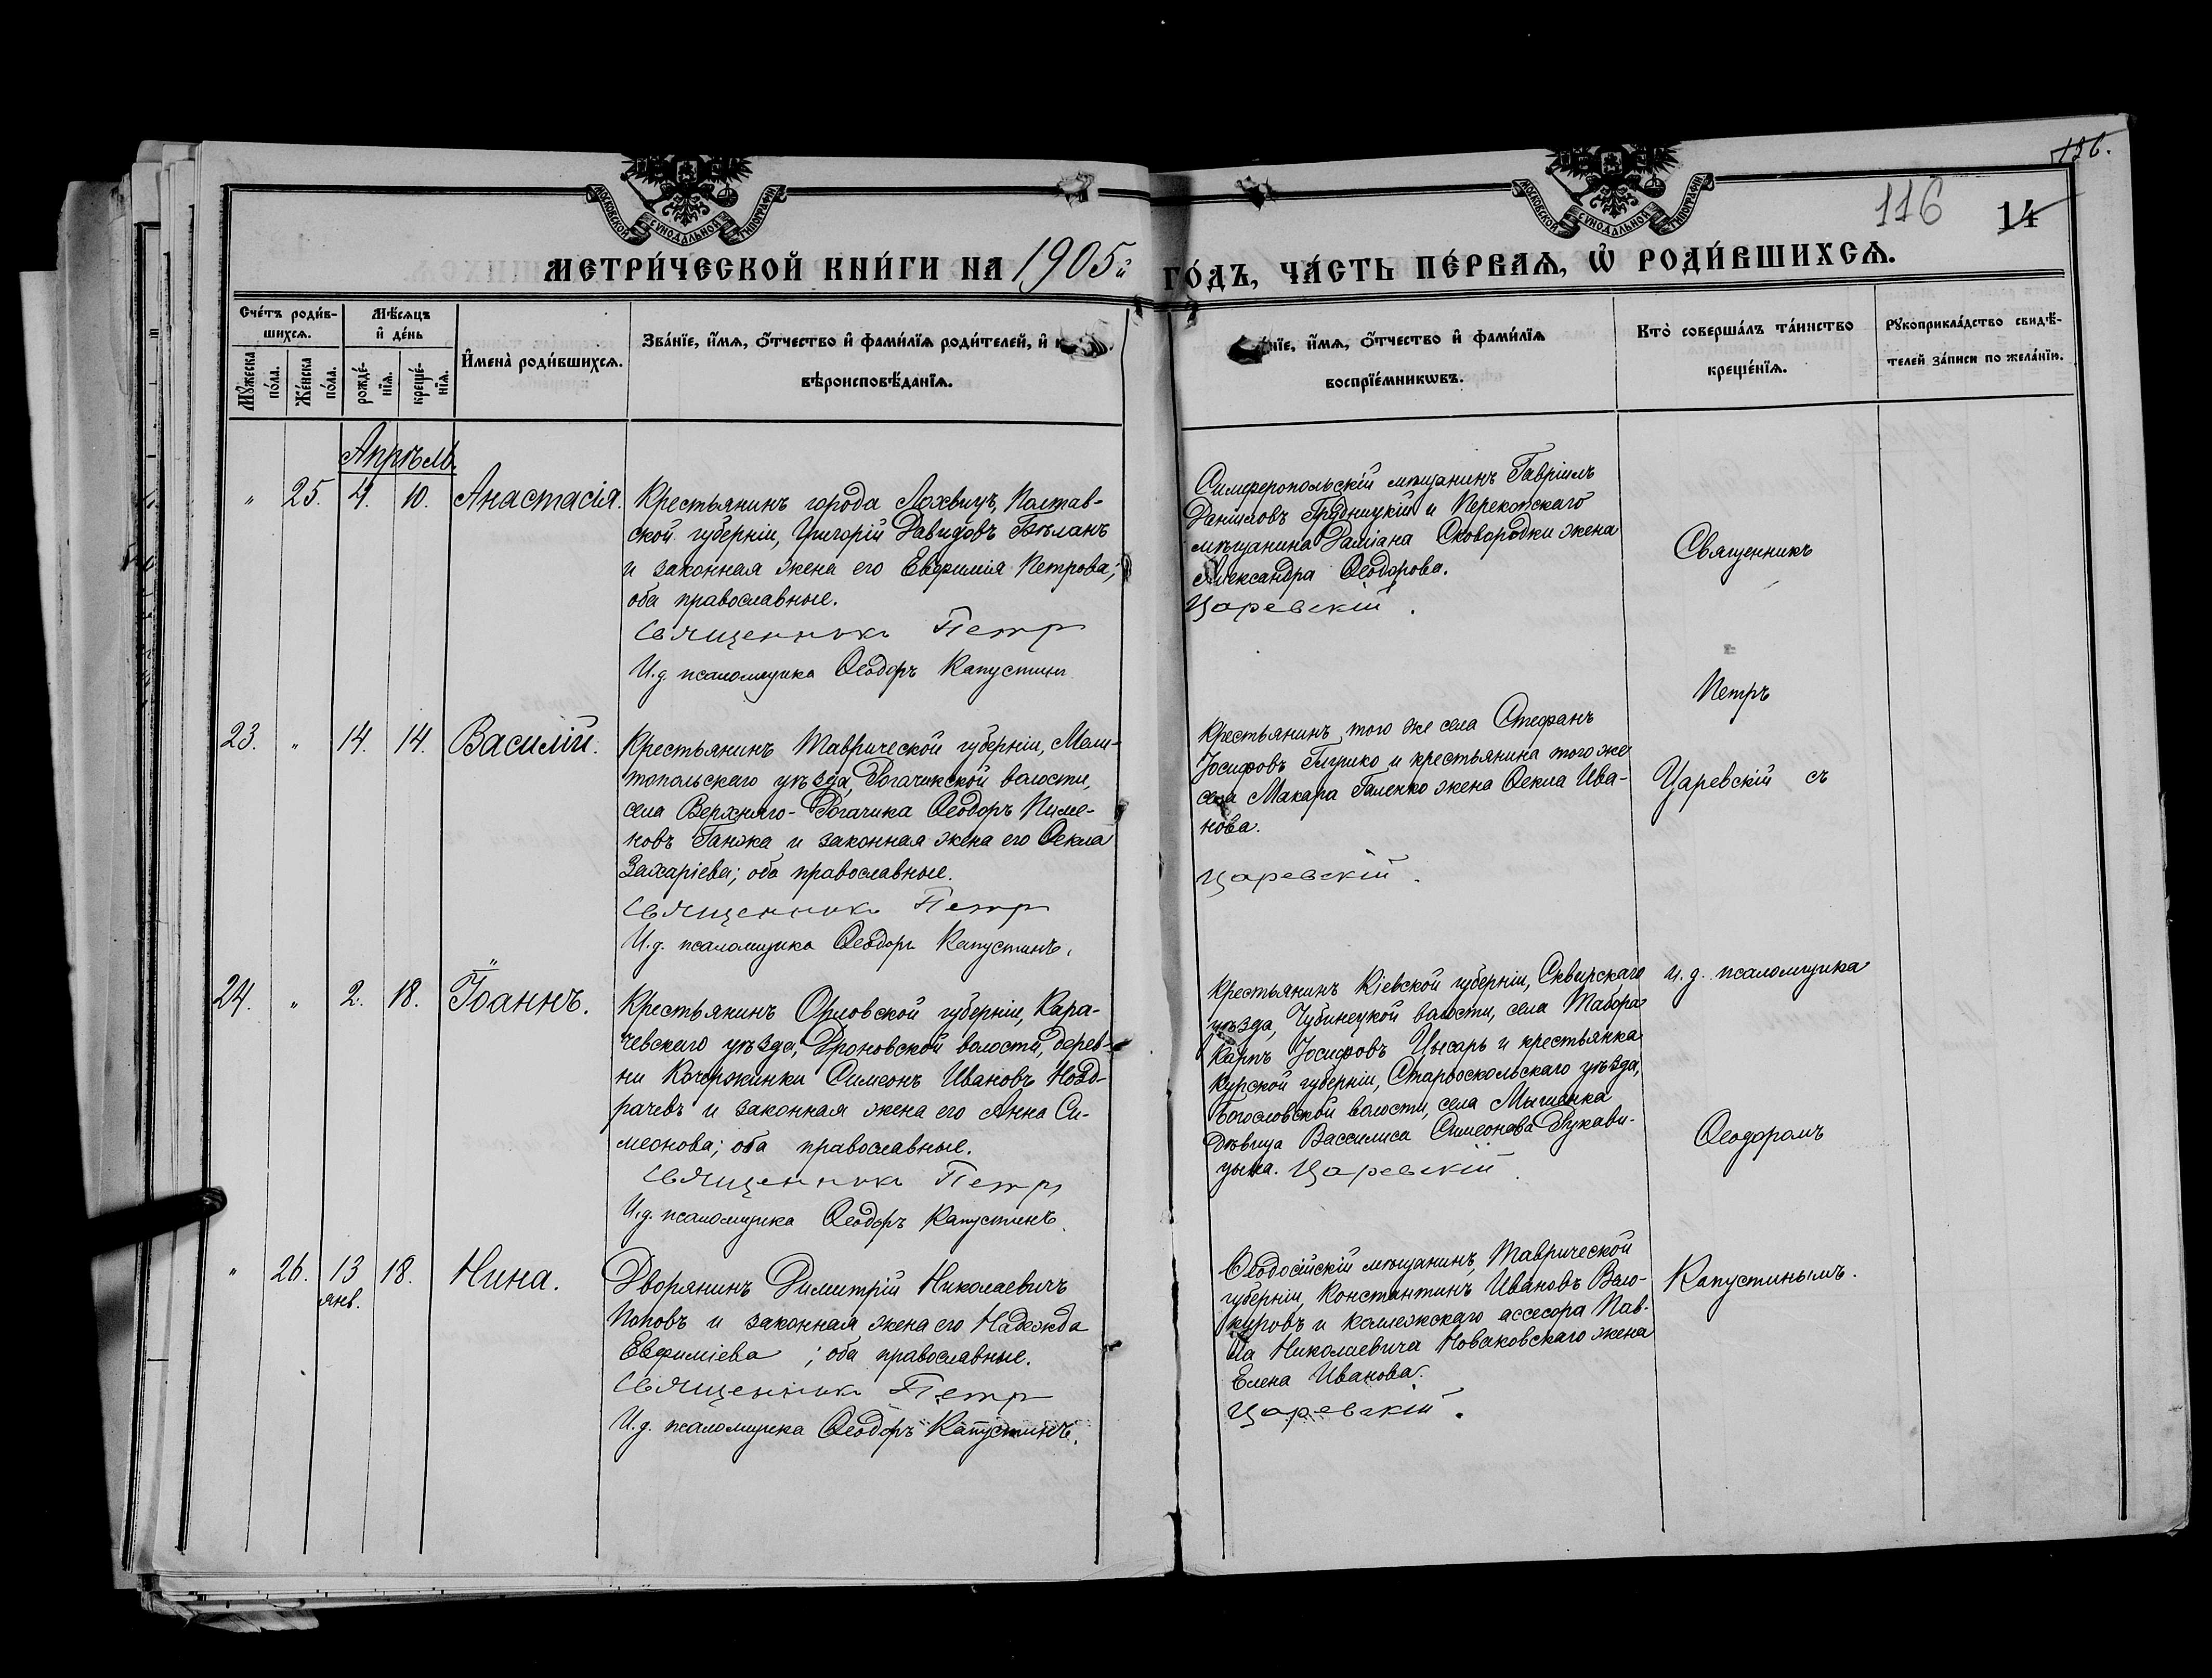 МОСКОВСКОЙ СѴНОДАЛЬНОЙ ТИПОГРАФІИ
МОСКОВСКОЙ СѴНОДАЛЬНОЙ ТИПОГРАФІИ
136.
116
14
МЕТРИ́ЧЕСКОЙ КНИ́ГИ НА 1905й ГО́ДЪ, ЧА́СТЬ ПЕ́РВАѦ, Ѡ҆ РОДИ́ВШИХСѦ.
Сче́тъ роди́в-
шихсѧ.
Мѣ́сѧцъ
и҆ де́нь
Мꙋ́жеска
по́ла.
Же́нска
по́ла.
рожде́-
нїѧ.
креще́-
нїѧ.
И҆мена̀ роди́вшихсѧ.
Зва́нїе, и҆́мѧ, ѻ҆́тчество и҆ фами́лїѧ роди́телей, и҆
вѣроисповѣ́данїѧ.
нїе, и҆́мѧ, ѻ҆́тчество и҆ фами́лїѧ
воспрїе́мникѡвъ.
Кто̀ соверша́лъ та́инство
креще́нїѧ.
Рꙋкоприкла́дство свидѣ́-
телей за́писи по жела́нїю.
Апрѣль.
" 25. 4. 10. Анастасія.
Крестьянинъ города Лохвицъ, Полтав-
ской губерніи, Григорій Давидовъ Бѣланъ
и законная жена его Евфимія Петрова;
оба православные.
Священникъ Петр
И.д. псаломщика Ѳеодоръ Капустин
Симферопольскій мѣщанинъ Гавріилъ
Даниловъ Грудницкій и Перекопскаго
мѣщанина Даміана Сковородки жена
Александра Ѳеодорова.
Царевскій.
Священникъ
Петръ
23. " 14. 14. Василій.
Крестьянинъ Таврической губерніи, Мели-
топольскаго уѣзда, Рогачикской волости,
села Верхняго-Рогачика Ѳеодоръ Пиме-
новъ Ганжа и законная жена его Ѳекла
Захаріева; оба православные.
Священникъ Петр
И.д. псаломщика Ѳеодоръ Капустинъ.
Крестьянинъ того же села Стефанъ
Іосифовъ и крестьянина того же
села Макара Галенко жена Ѳекла Ива-
нова.
Царевскій.
Царевскій съ
24. " 2. 18. Іоаннъ.
Крестьянинъ Орловской губерніи, Кара-
чевскаго уѣзда, Дроновской волости, дерев-
ни Симеонъ Ивановъ Нозд-
рачевъ и законная жена его Анна Си-
меонова; оба православные.
Священникъ Петръ
И.д. псаломщика Ѳеодоръ Капустинъ.
Крестьянинъ Кіевской губерніи, Сквирскаго
уѣзда, Чубинецкой волости, села Табора
Карпъ Іосифовъ Цысарь и крестьянка
Курской губерніи, Старооскольскаго уѣзда,
Богословской волости, села Мышенка
дѣвица Вассилиса Симеонова Рукави-
цына. Царевскій.
и.д. псаломщика
Ѳеодоромъ
" 26. 13 18. Нина.
янв.
Дворянинъ Димитрій Николаевичъ
Поповъ и законная жена его Надежда
Евфиміева; оба православные.
Священникъ Петр
И.д. псаломщика Ѳеодоръ Капустинъ.
Ѳеодосійскій мѣщанинъ, Таврической
губерніи, Константинъ Ивановъ Вело-
куровъ и коллежскаго ассесора Пав-
ла Николаевича Новаковскаго жена
Елена Иванова.
Царевскій.
Капустинымъ.